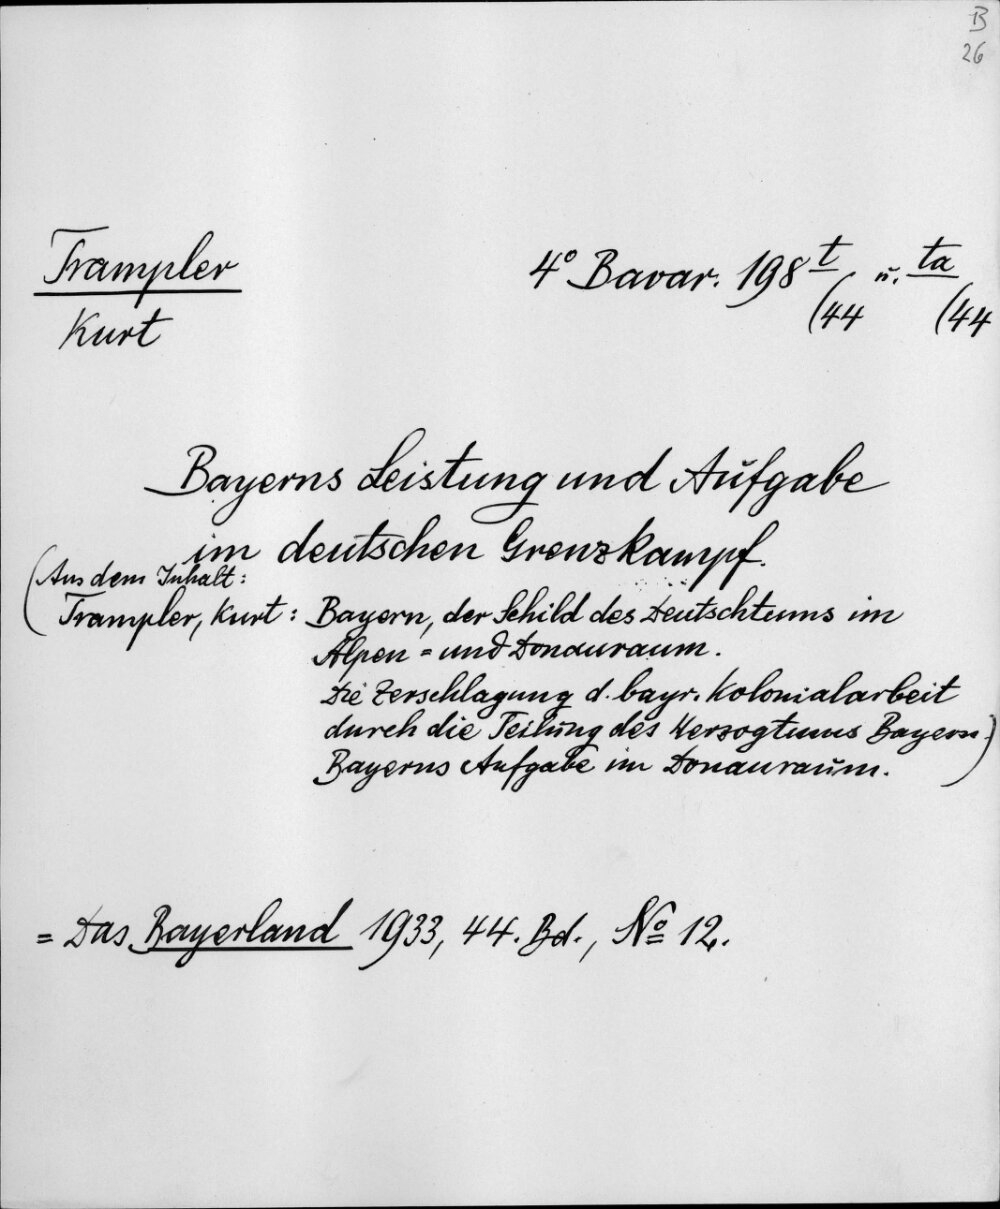 B
26
Trampler
Kurt
4° Bavar. 198 t u. ta
(44 (44
Bayerns Leistung und Aufgabe
im deutschen Grenzkampf.
(Aus dem Inhalt:
Trampler, Kurt: Bayern, der Schild des Deutschtums im
Alpen= und Donauraum.
Die Zerschlagung d. bayr. Kolonialarbeit
durch die Teilung des Herzogtums Bayern.
Bayerns Aufgabe im Donauraum.)
= Das Bayerland 1933, 44. Bd., No 12.